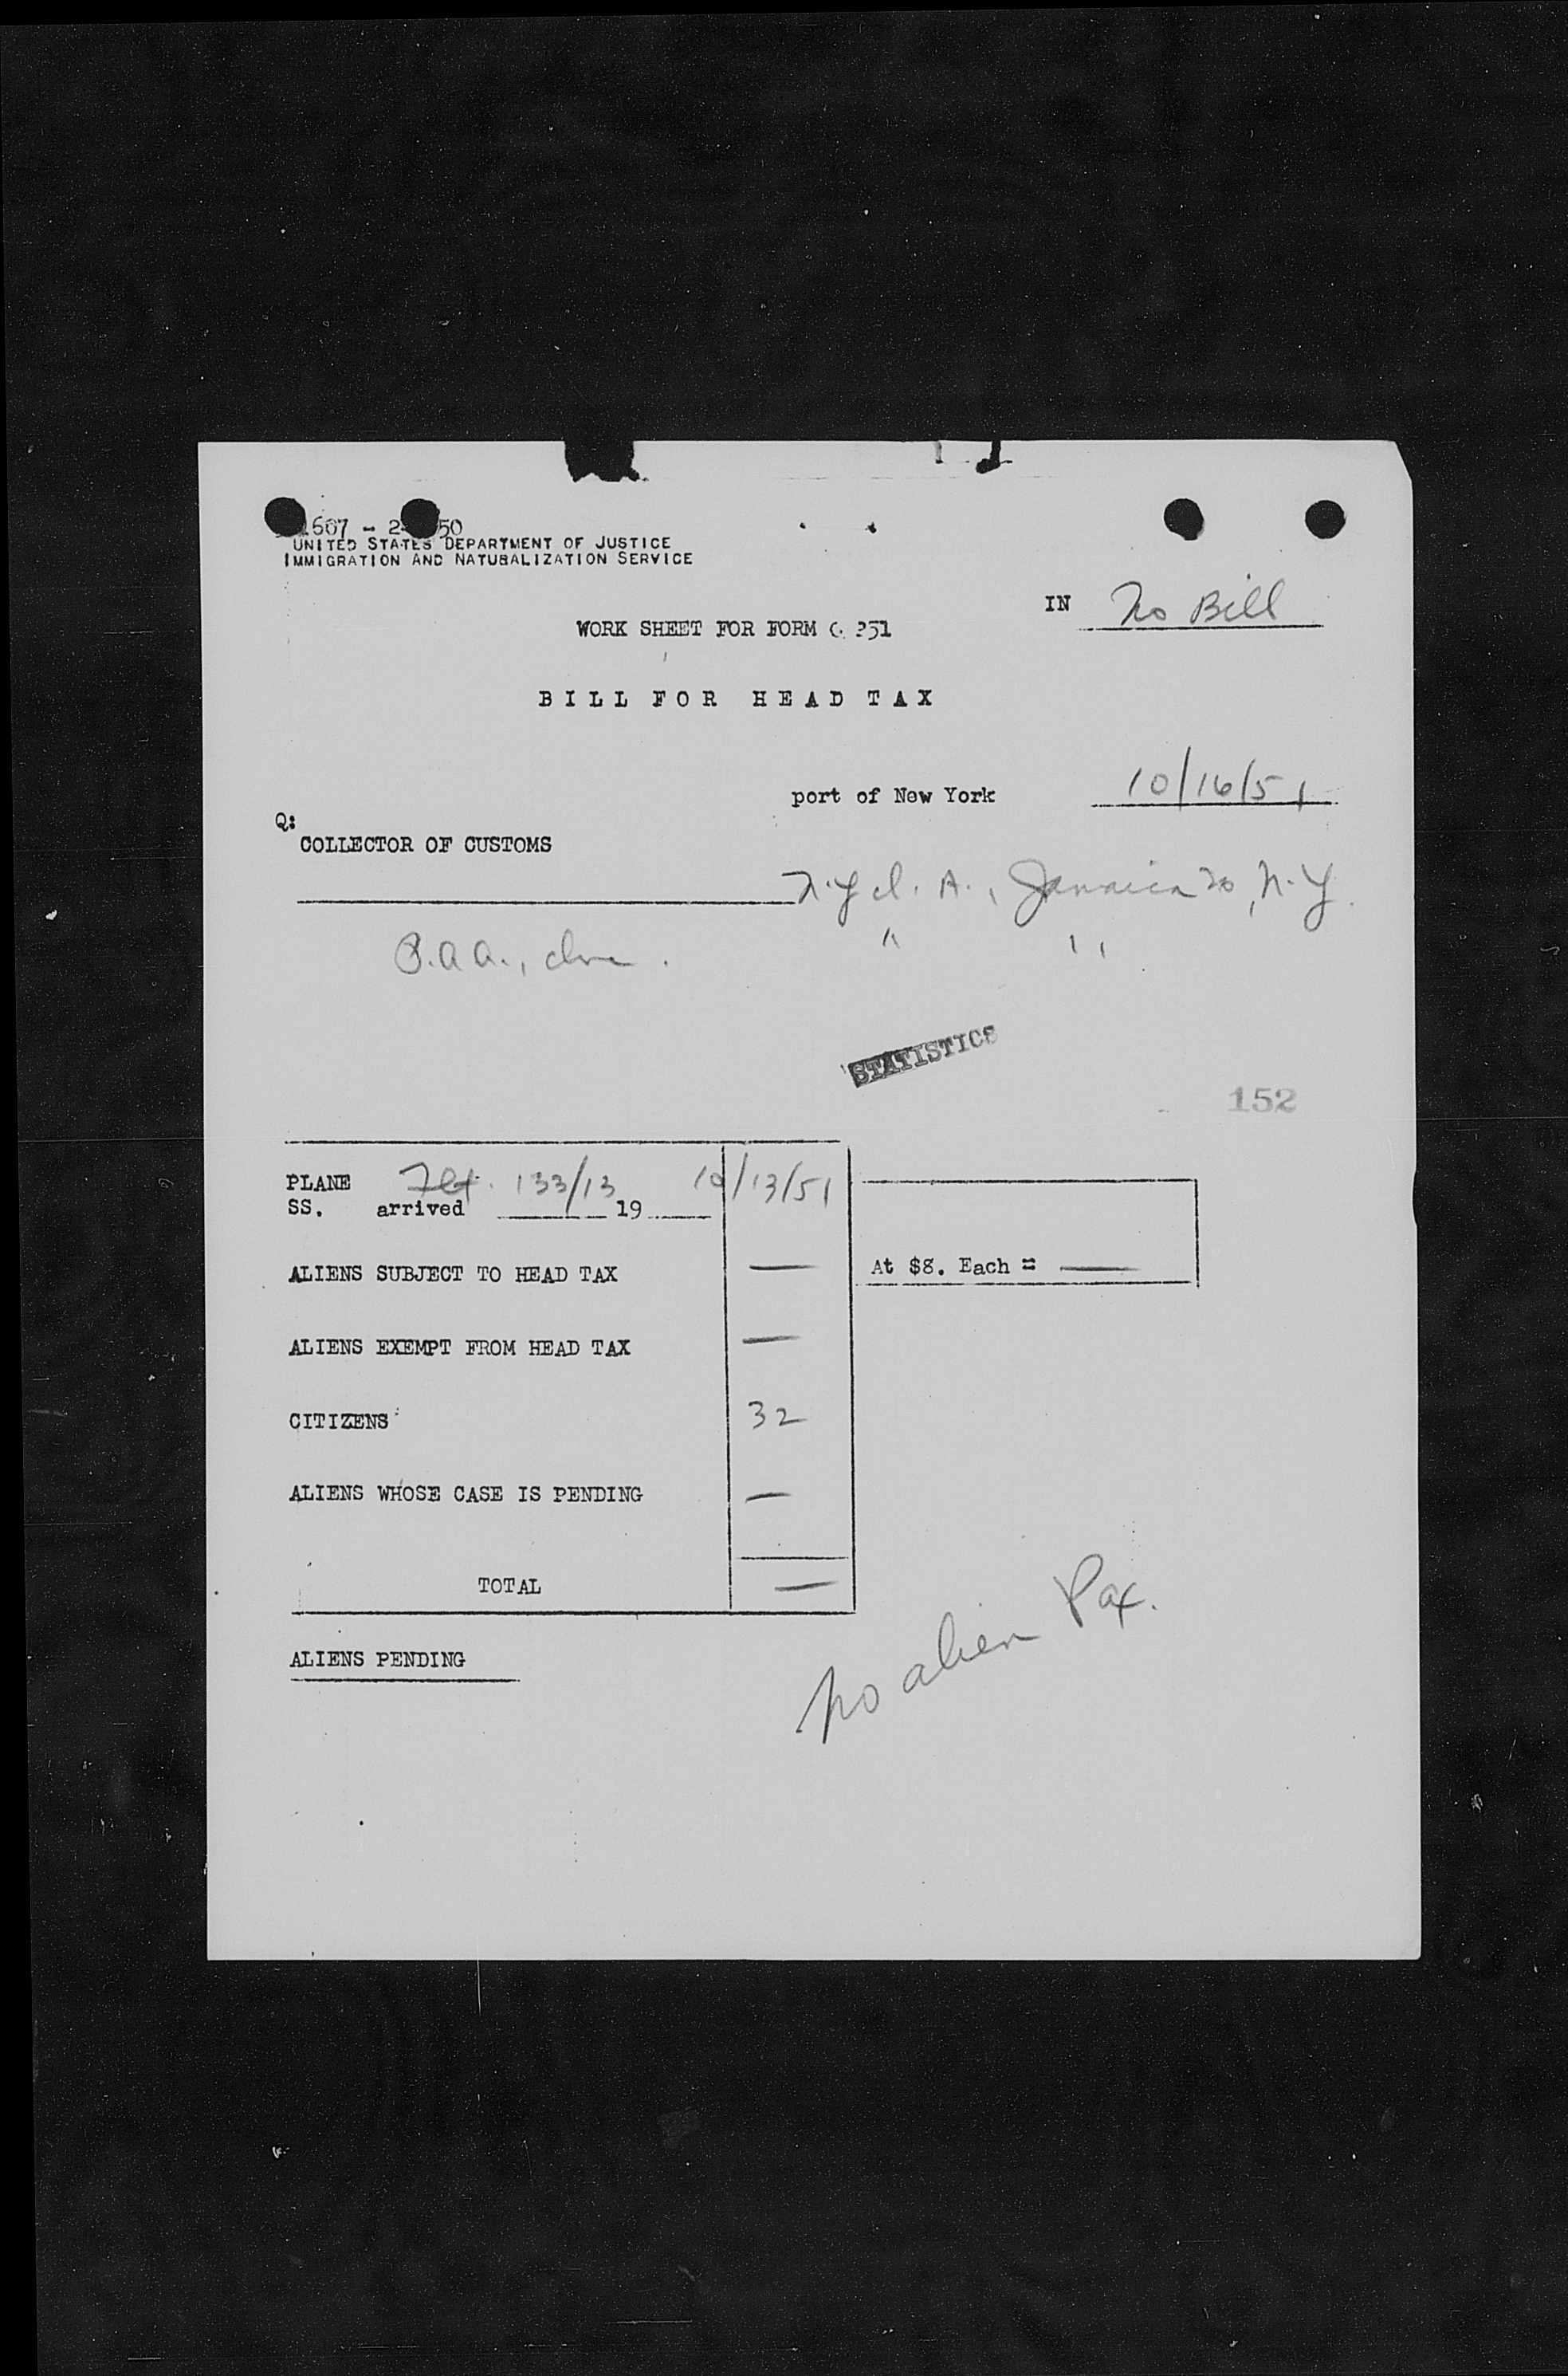 1607 - 2 50
UNITED STATES DEPARTMENT OF JUSTICE
IMMIGRATION AND NATURALIZATION SERVICE
IN No Bill
WORK SHEET FOR FORM G 251
BILL FOR HEAD TAX
port of New York 10/16/51
Q:
COLLECTOR OF CUSTOMS
N.Y.I.A., Jamaica 20, N.Y.
P.A.A., " "
STATISTICS
152
PLANE Flt. 133/13 10/13/51
SS. arrived 19
ALIENS SUBJECT TO HEAD TAX — At $8. Each = —
ALIENS EXEMPT FROM HEAD TAX —
CITIZENS 32
ALIENS WHOSE CASE IS PENDING —
TOTAL —
ALIENS PENDING
No alien Pax.